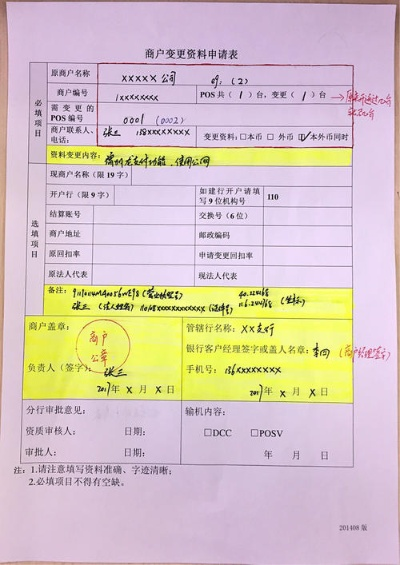 商户变更资料申请表
必填项目
原商户名称 XXXXX公司 (2)
商户编号 1XXXXXXXX POS共（1）台，变更（1）台
需变更的POS编号 0001 (0002)
商户联系人、电话： 张三 138XXXXXXXX 变更资料：□本币 □外币 ☑本外币同时
资料变更内容：
选填项目
现商户名称（限19字）
开户行（限9字） 如建行开户请填写9位机构号 110
结算账号 交换号（6位）
商户地址 邮政编码
原回扣率 申请变更回扣率
原法人代表 现法人代表
备注：
张三
商户盖章：
商户公章
负责人（签字）： 张三
2017年 X 月 X 日
管辖行名称： XX支行
银行客户经理签字或盖人名章： 李四 (客户经理签字)
手机号： 136XXXXXXXX
2017年 X 月 X 日
分行审批意见：
资质审核人： 日期：
审批人： 日期：
输机内容：
□DCC □POSV
年 月 日
注：1.请注意填写资料准确、字迹清晰；
2.必填项目不得有空缺。
201408 版